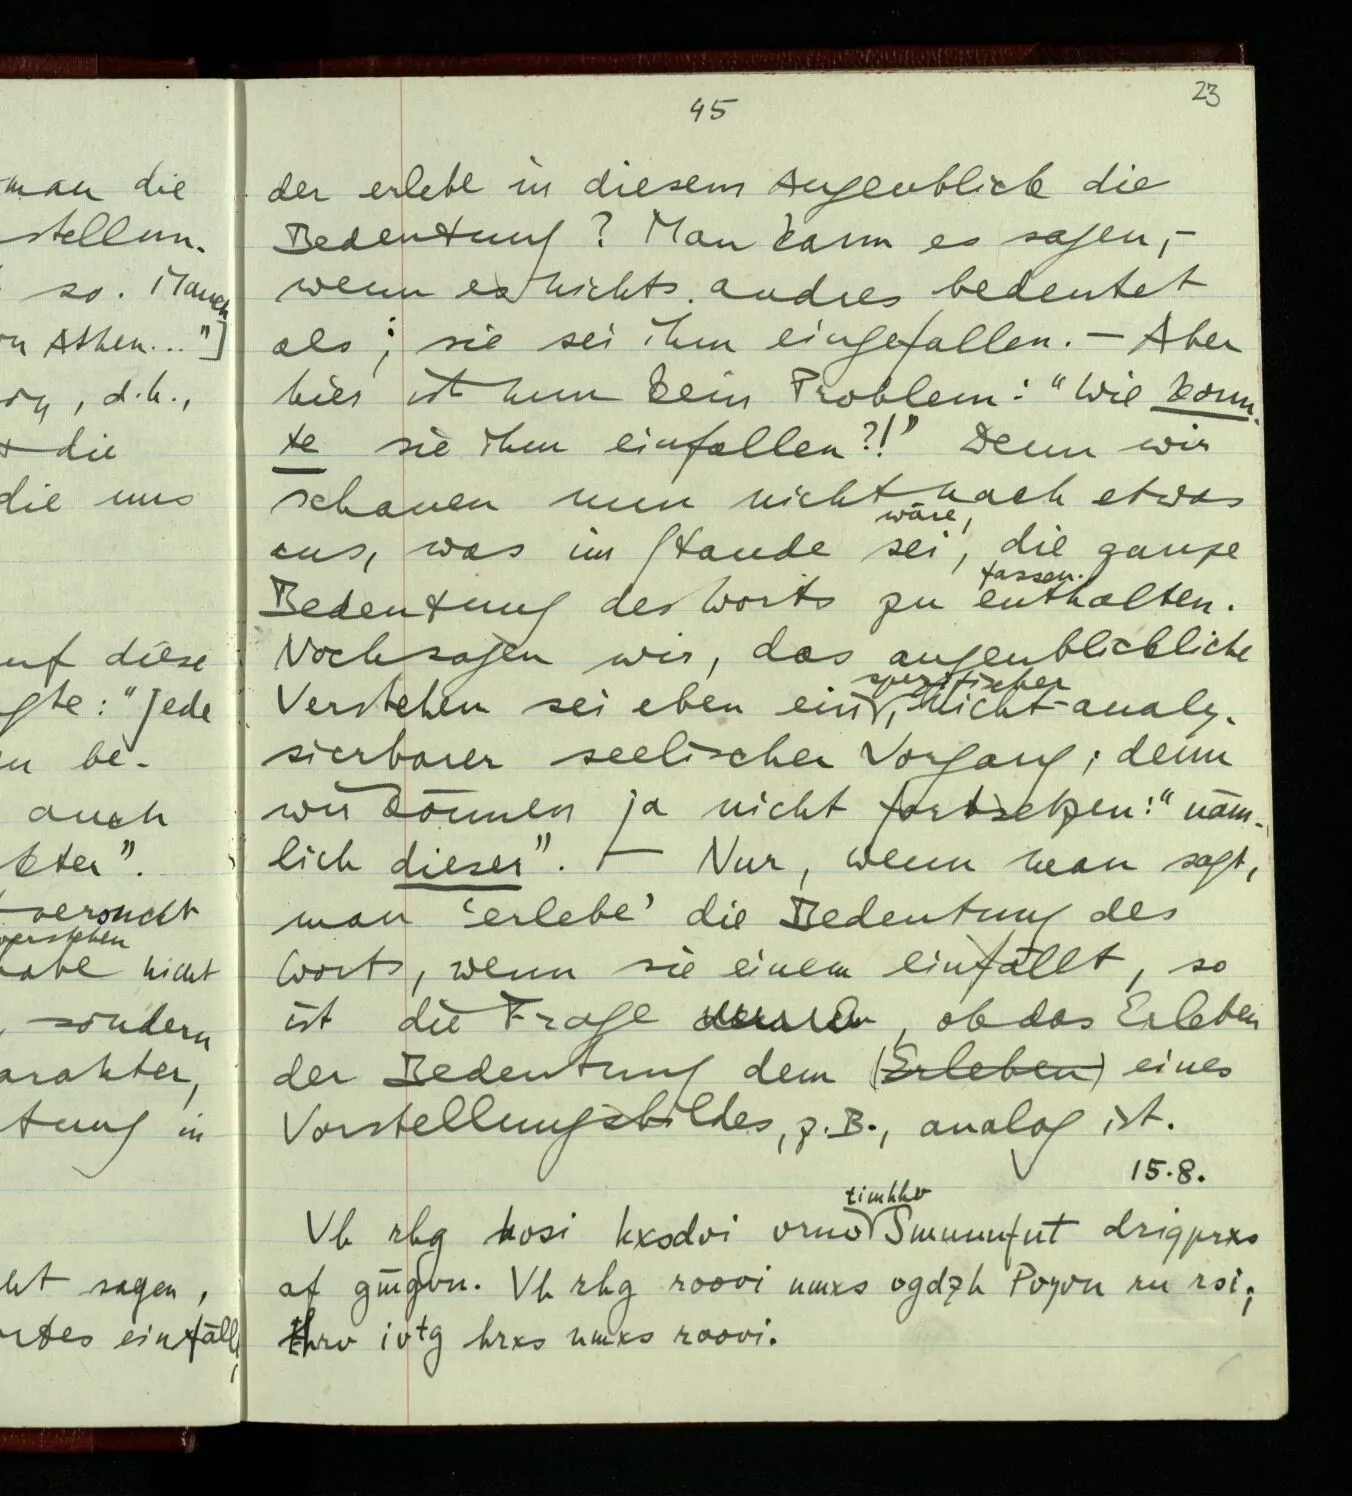 man die
stellun-
so. Manch
on Athen..."]
, d.h.,
die
die uns
auf diese
gte: "Jede
en be-
auch
kter".
versucht
verstehen
habe nicht
, sondern
arakter,
tung in
cht sagen,
ortes einfällt,
23
45
der erlebe in diesem Augenblick die
Bedeutung? Man kann es sagen, –
wenn es nichts andres bedeutet
als; sie sei ihm eingefallen. – Aber
hier ist nun kein Problem: "Wie konn-
te sie ihm einfallen?!" Denn wir
schauen nun nicht nach etwas
wäre,
aus, was im Stande sei, die ganze
fassen.
Bedeutung des Worts zu enthalten.
Noch sagen wir, das augenblickliche
spezifischer
Verstehen sei eben ein, nicht-analy-
sierbarer seelischer Vorgang; denn
wir können ja nicht fortsetzen: "näm-
lich dieser". – Nur, wenn man sagt,
man 'erlebe' die Bedeutung des
Worts, wenn sie einem einfällt, so
ist die Frage, ob das Erleben
der Bedeutung dem (Erleben) eines
Vorstellungsbildes, z.B., analog ist.
15.8.
timhhv
Vh rhg hosi hxsdvi vrnv Smunnfut drigprxs
af gmgvn. Vh rhg roovi nmxs ogdzh Poyvn rn rsi;
thrv ivtg hrxs nmxs roovi.